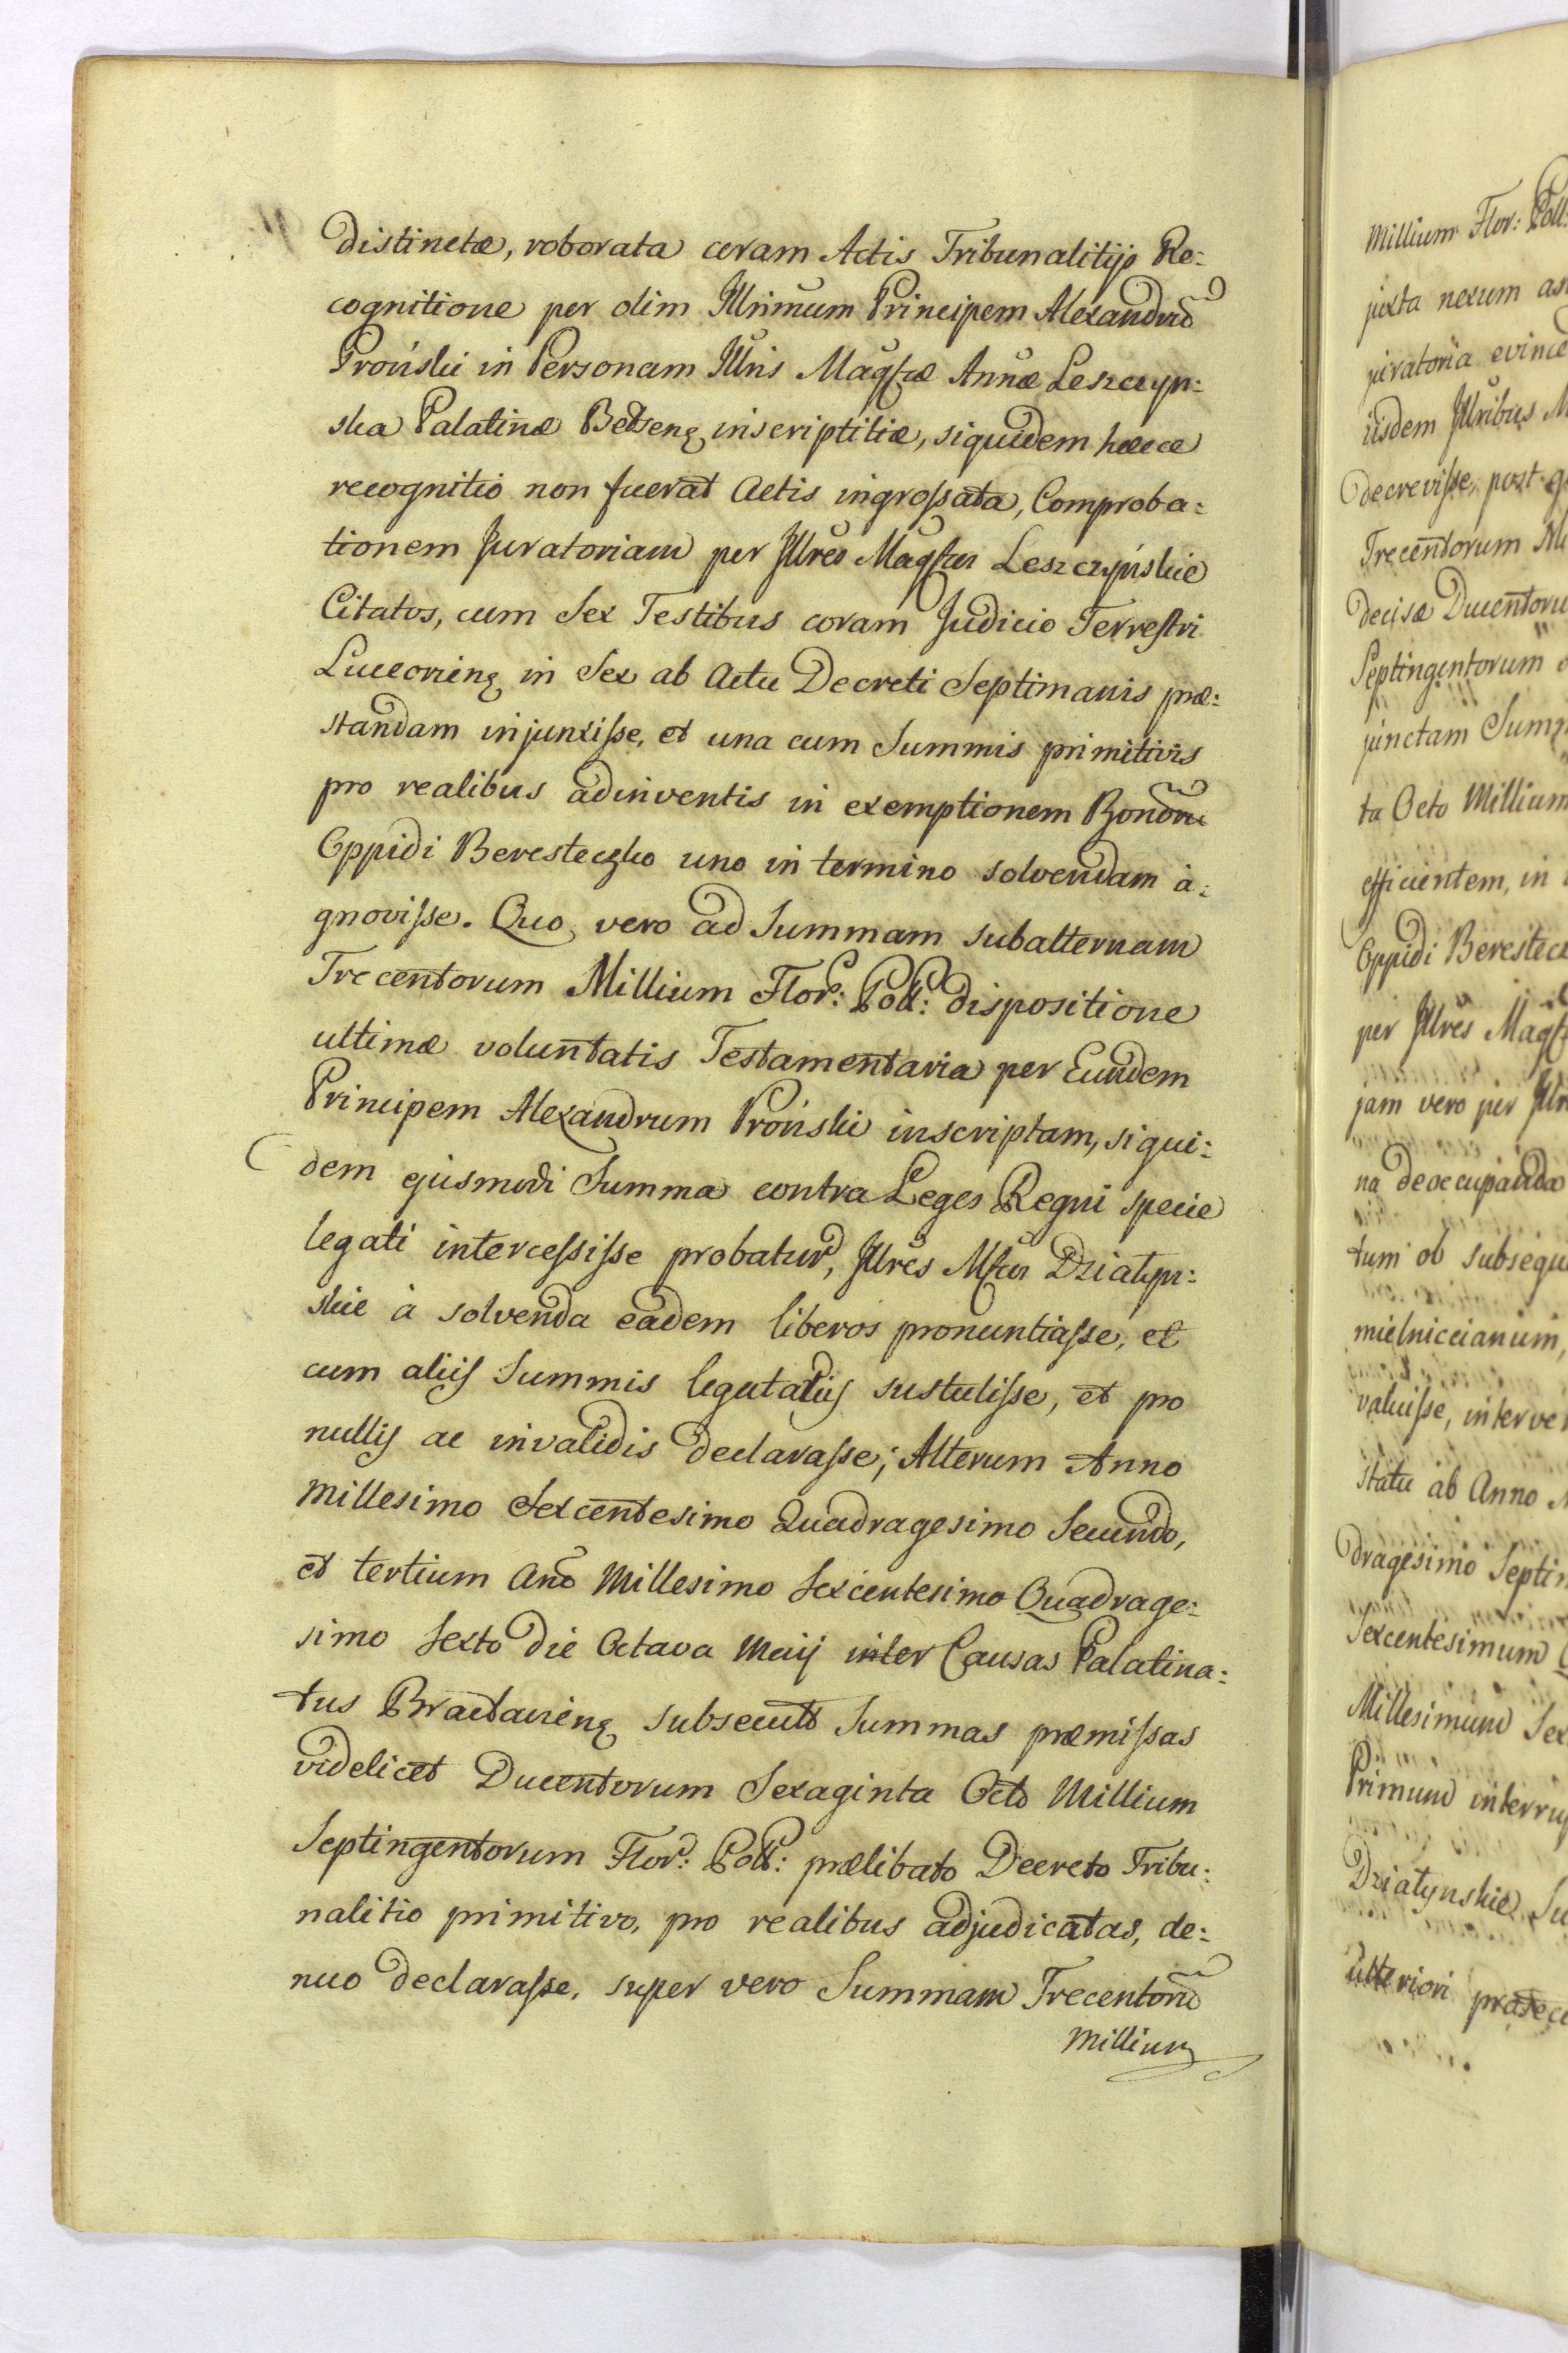 distinctæ, roborata coram Actis Tribunalitijs Re:
cognitione per olim Illrimum Principem Alexandrũ
Proński in Personam Illris Magſcæ Annæ Leszczyn:
ska Palatinæ Belzenę inscriptitiæ, siquidem hæcce
recognitio non fuerat Actis ingroſsata, Comproba:
tionem Juratoriam per Illres Magſcos Leszczyńskie
Citatos, cum Sex Testibus coram Judicio Terreſtri
Luceorienę in Sex ab Actu Decreti Septimanis præ:
standam injunxiſse, et una cum Summis primitivis
pro realibus adinventis in exemptionem Bonorũ
Oppidi Beresteczko uno in termino solvendam a:
gnoviſse. Quo vero ad Summam subalternam
Trecentorum Millium Flor: Poll: dispositione
ultimæ voluntatis Testamentaria per Eundem
Principem Alexandrum Proński inscriptam, siqui:
dem ejusmodi Summa contra Leges Regni specie
legati interceſsiſse probatur, Illres Mſcos Działyn:
skie à solvenda eadem liberos pronuntiaſse, et
cum aliis Summis legatariis sustuliſse, et pro
nullis ac invalidis declaraſse; Alterum Anno
Millesimo Sexcentesimo Quadragesimo Secundo,
et tertium Anõ Millesimo Sexcentesimo Quadrage:
simo Sexto die Octava Maij inter Causas Palatina:
tus Bractavienę subsecuto Summas præmiſsas
videlicet Ducentorum Sexaginta Octo Millium
Septingentorum Flor: Poll: prælibato Decreto Tribu:
nalitio primitivo, pro realibus adjudicatas, de:
nuo declaraſse, super vero Summam Trecentorũ
Millium
Millium Flor: Poll:
juxta nexum
juratoria
iisdem Illribus
decreviſse, post
Trecentorum
decisa Ducentoru
Septingentorum
junctam Sum
ta Octo Millium
efficientem, in
Oppidi Berestecz
per Illres Magſc
jam vero per
na deoccupanda
tum ob subsequ
mielniccianum,
valuiſse, interve
statu ab Anno
dragesimo Septim
Sexcentesimum
Millesimum Sex
Primum interru
Działynskie Su
ulteriori